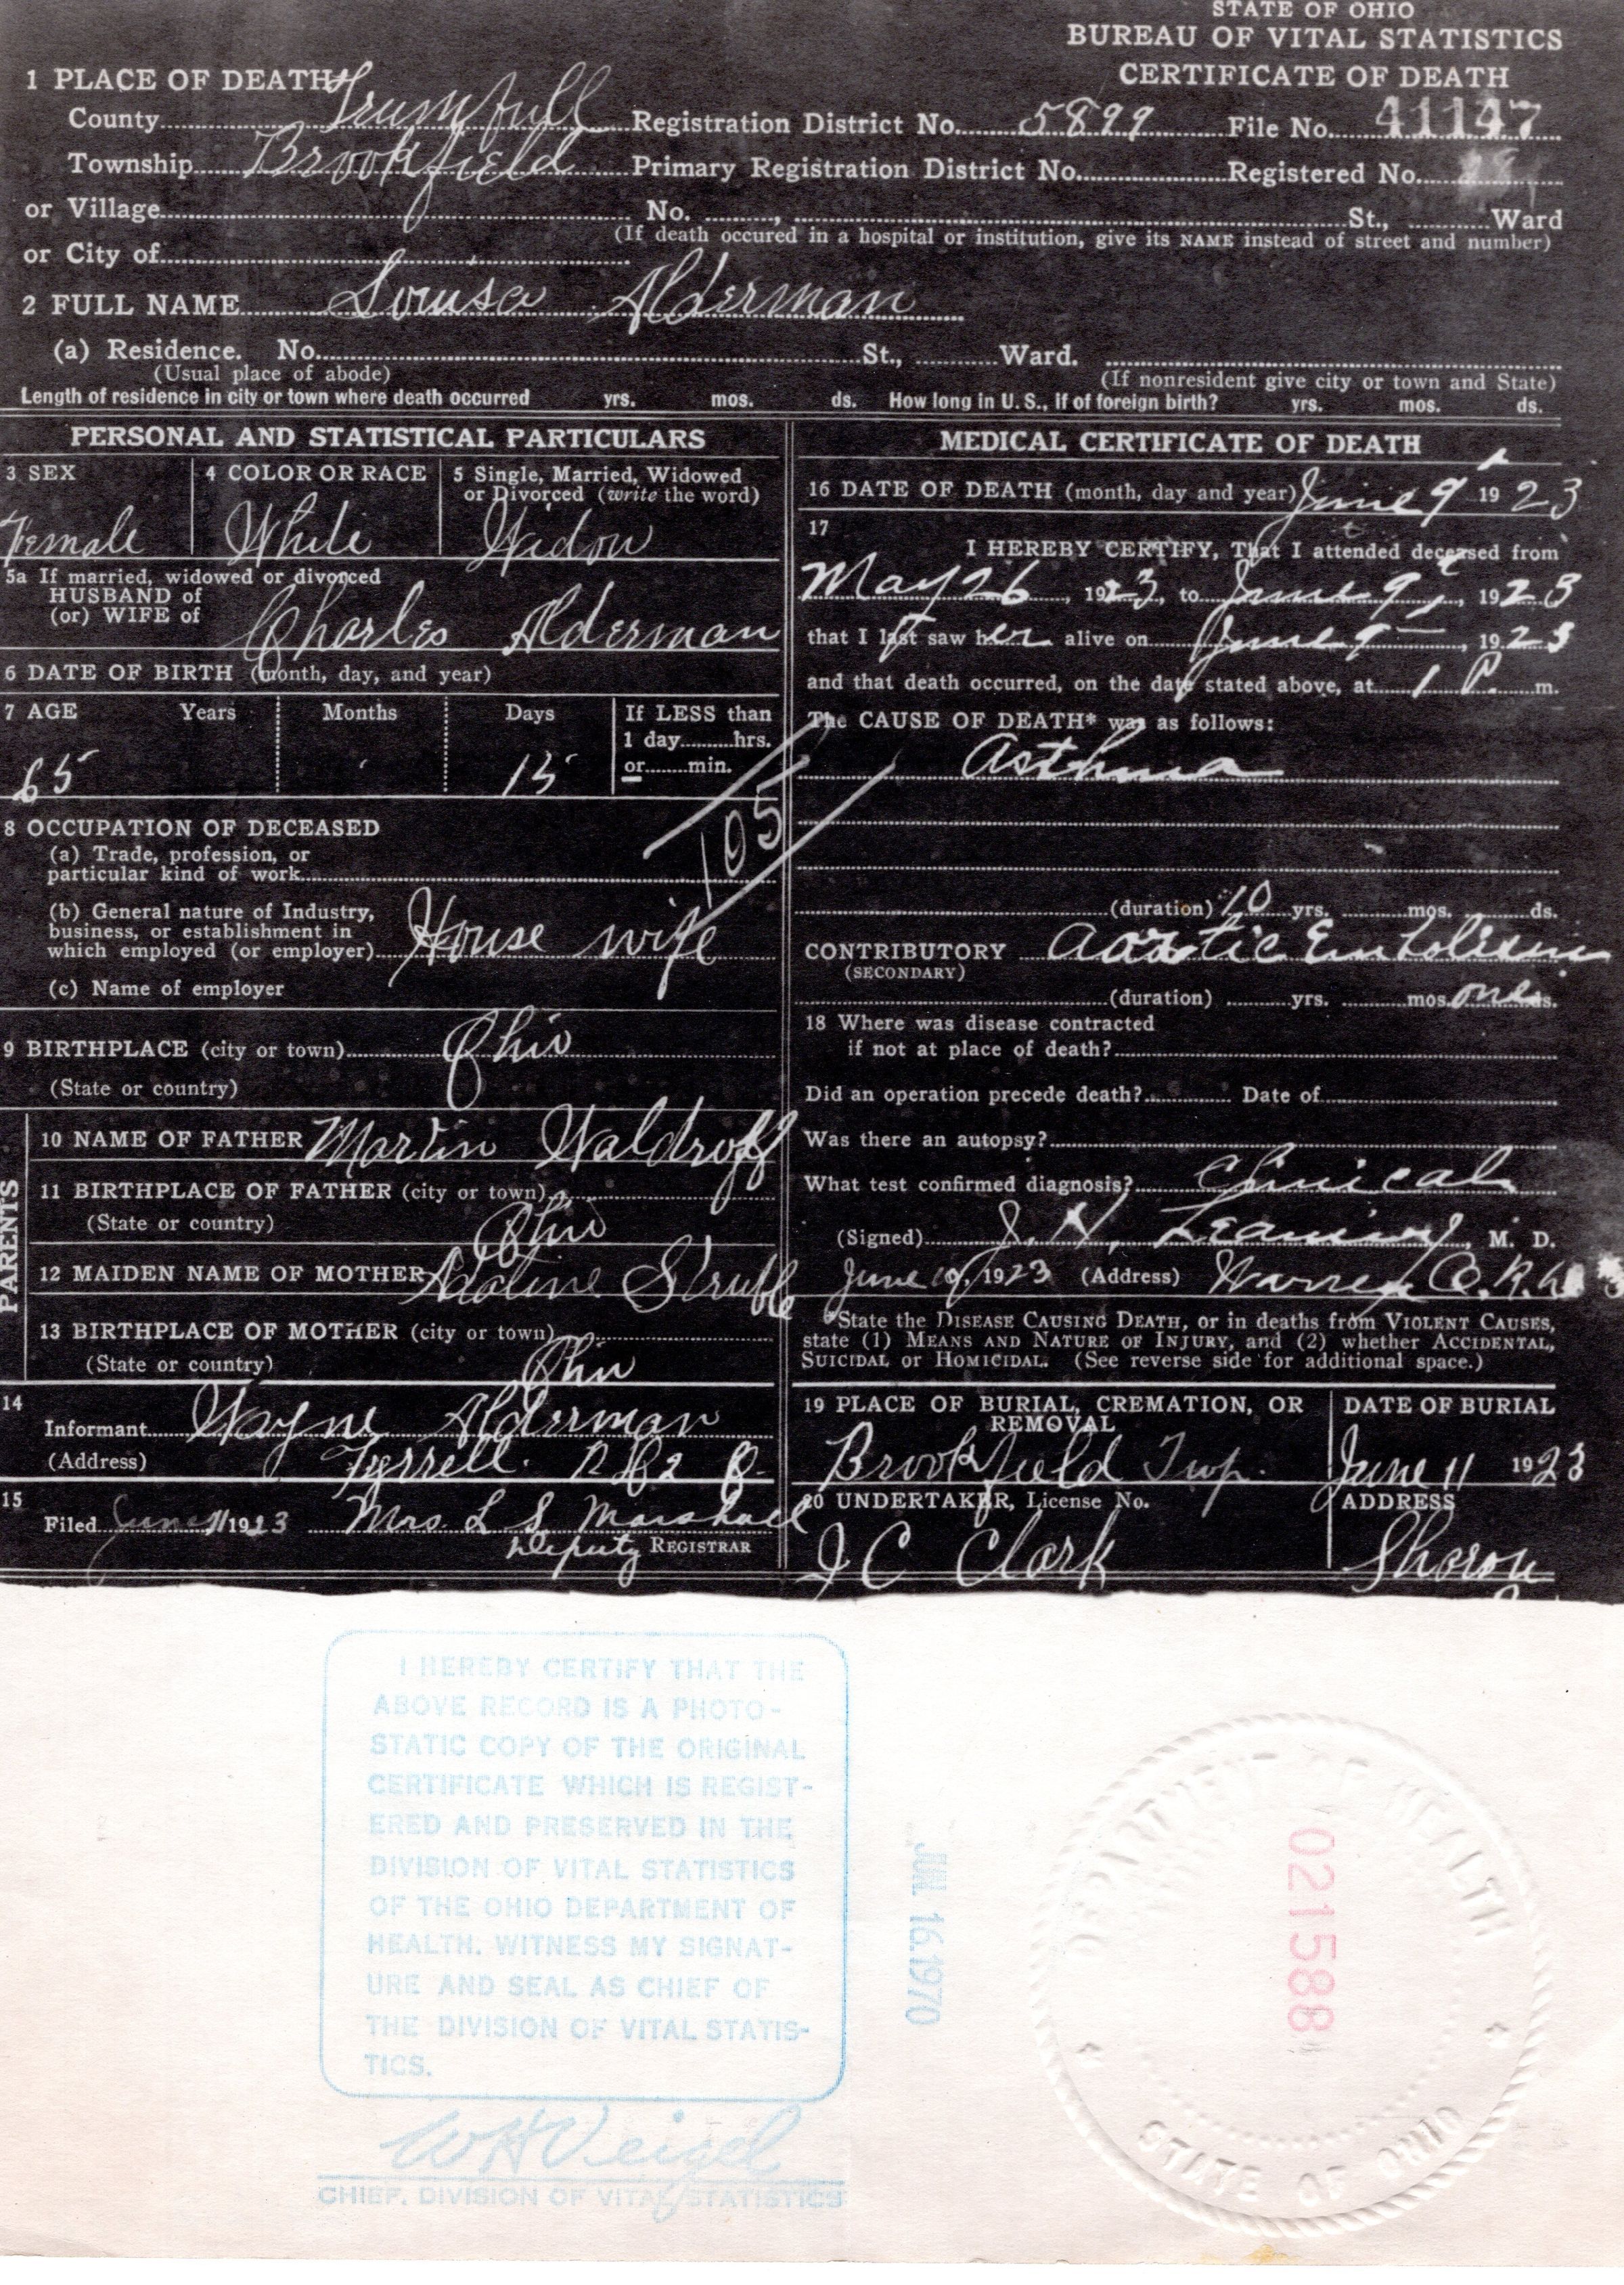 STATE OF OHIO
BUREAU OF VITAL STATISTICS
CERTIFICATE OF DEATH
1 PLACE OF DEATH
County Trumbull Registration District No. 5899 File No. 41147
Township Brookfield Primary Registration District No. Registered No.
or Village No. , St., Ward
(If death occured in a hospital or institution, give its NAME instead of street and number)
or City of
2 FULL NAME Louisa Alderman
(a) Residence. No. St., Ward.
(Usual place of abode) (If nonresident give city or town and State)
Length of residence in city or town where death occurred yrs. mos. ds. How long in U. S., if of foreign birth? yrs. mos. ds.
PERSONAL AND STATISTICAL PARTICULARS
3 SEX 4 COLOR OR RACE 5 Single, Married, Widowed
or Divorced (write the word)
Female White Widow
5a If married, widowed or divorced
HUSBAND of
(or) WIFE of Charles Alderman
6 DATE OF BIRTH (month, day, and year)
7 AGE Years Months Days If LESS than
1 day hrs.
or min.
65 15
105
8 OCCUPATION OF DECEASED
(a) Trade, profession, or
particular kind of work
(b) General nature of Industry,
business, or establishment in
which employed (or employer) House wife
(c) Name of employer
9 BIRTHPLACE (city or town) Ohio
(State or country)
PARENTS
10 NAME OF FATHER Martin Waldroff
11 BIRTHPLACE OF FATHER (city or town)
(State or country) Ohio
12 MAIDEN NAME OF MOTHER Adaline Struble
13 BIRTHPLACE OF MOTHER (city or town)
(State or country) Ohio
14
Informant Wayne Alderman
(Address) Tyrrell.
15
Filed June 11 1923 Mrs. L S Marshall
Deputy REGISTRAR
MEDICAL CERTIFICATE OF DEATH
16 DATE OF DEATH (month, day and year) June 9 1923
17
I HEREBY CERTIFY, That I attended deceased from
May 26, 1923, to June 9, 1923
that I last saw her alive on June 9, 1923
and that death occurred, on the date stated above, at 1 P. m.
The CAUSE OF DEATH* was as follows:
Asthma
(duration) 10 yrs. mos. ds.
CONTRIBUTORY Aortic Embolism
(SECONDARY)
(duration) yrs. mos. one ds.
18 Where was disease contracted
if not at place of death?
Did an operation precede death? Date of
Was there an autopsy?
What test confirmed diagnosis? Clinical
(Signed) J. H. , M. D.
June 1923 (Address) Warren O.
*State the DISEASE CAUSING DEATH, or in deaths from VIOLENT CAUSES,
state (1) MEANS AND NATURE OF INJURY, and (2) whether ACCIDENTAL,
SUICIDAL or HOMICIDAL. (See reverse side for additional space.)
19 PLACE OF BURIAL, CREMATION, OR
REMOVAL
DATE OF BURIAL
Brookfield Twp. June 11 1923
20 UNDERTAKER, License No. ADDRESS
J C Clark Sharon
I HEREBY CERTIFY THAT THE
ABOVE RECORD IS A PHOTO-
STATIC COPY OF THE ORIGINAL
CERTIFICATE WHICH IS REGIST-
ERED AND PRESERVED IN THE
DIVISION OF VITAL STATISTICS
OF THE OHIO DEPARTMENT OF
HEALTH. WITNESS MY SIGNAT-
URE AND SEAL AS CHIEF OF
THE DIVISION OF VITAL STATIS-
TICS.
W H Veigel
CHIEF, DIVISION OF VITAL STATISTICS
JUN 16 1970
021588
DEPARTMENT OF HEALTH
STATE OF OHIO